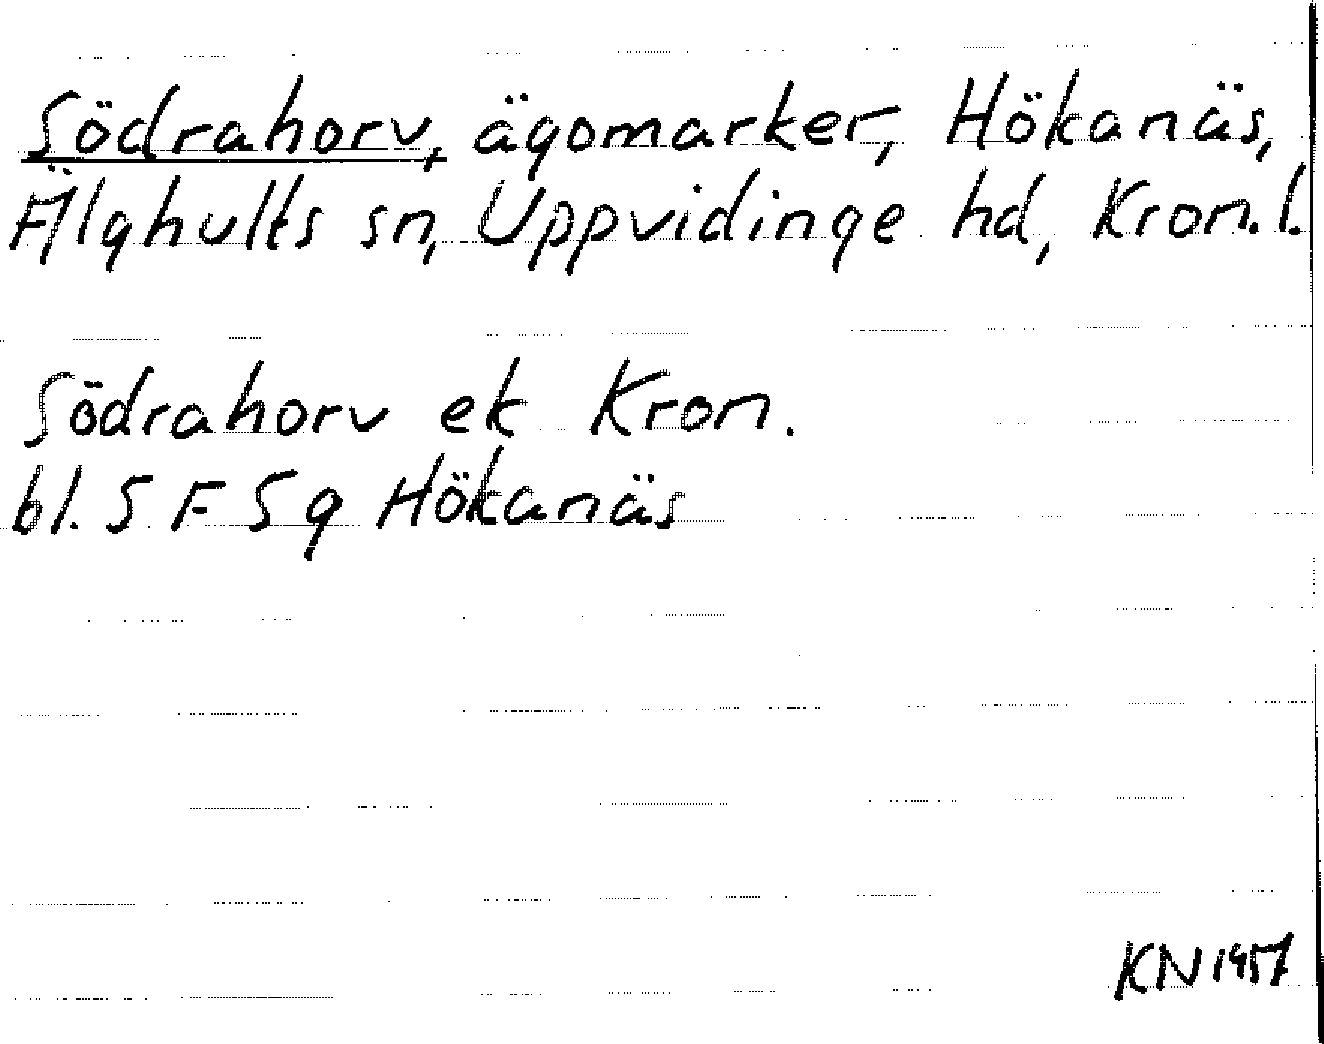 Södrahorv, ägomarker, Hökanäs,
Älghults sn, Uppvidinge hd, Kron.l.
Södrahorv ek Kron.
bl. S F S g Hökanäs
KN 1957